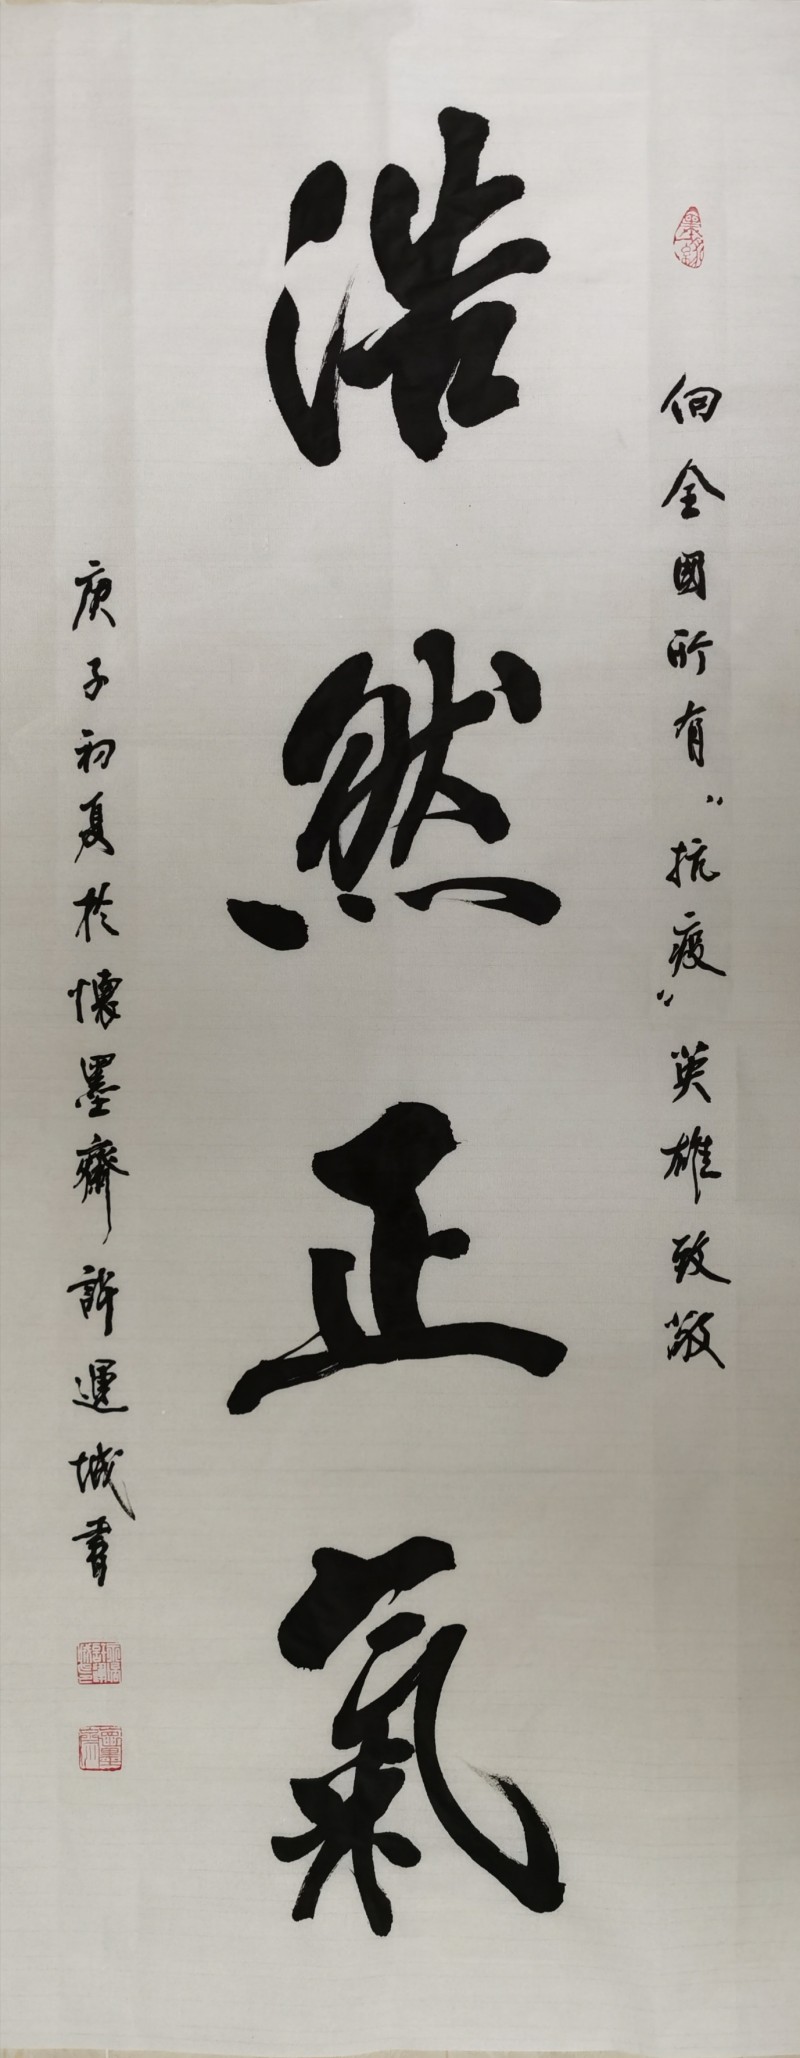 向全國所有“抗疫”英雄致敬
浩然正氣
庚子初夏於懷墨齋許運城書